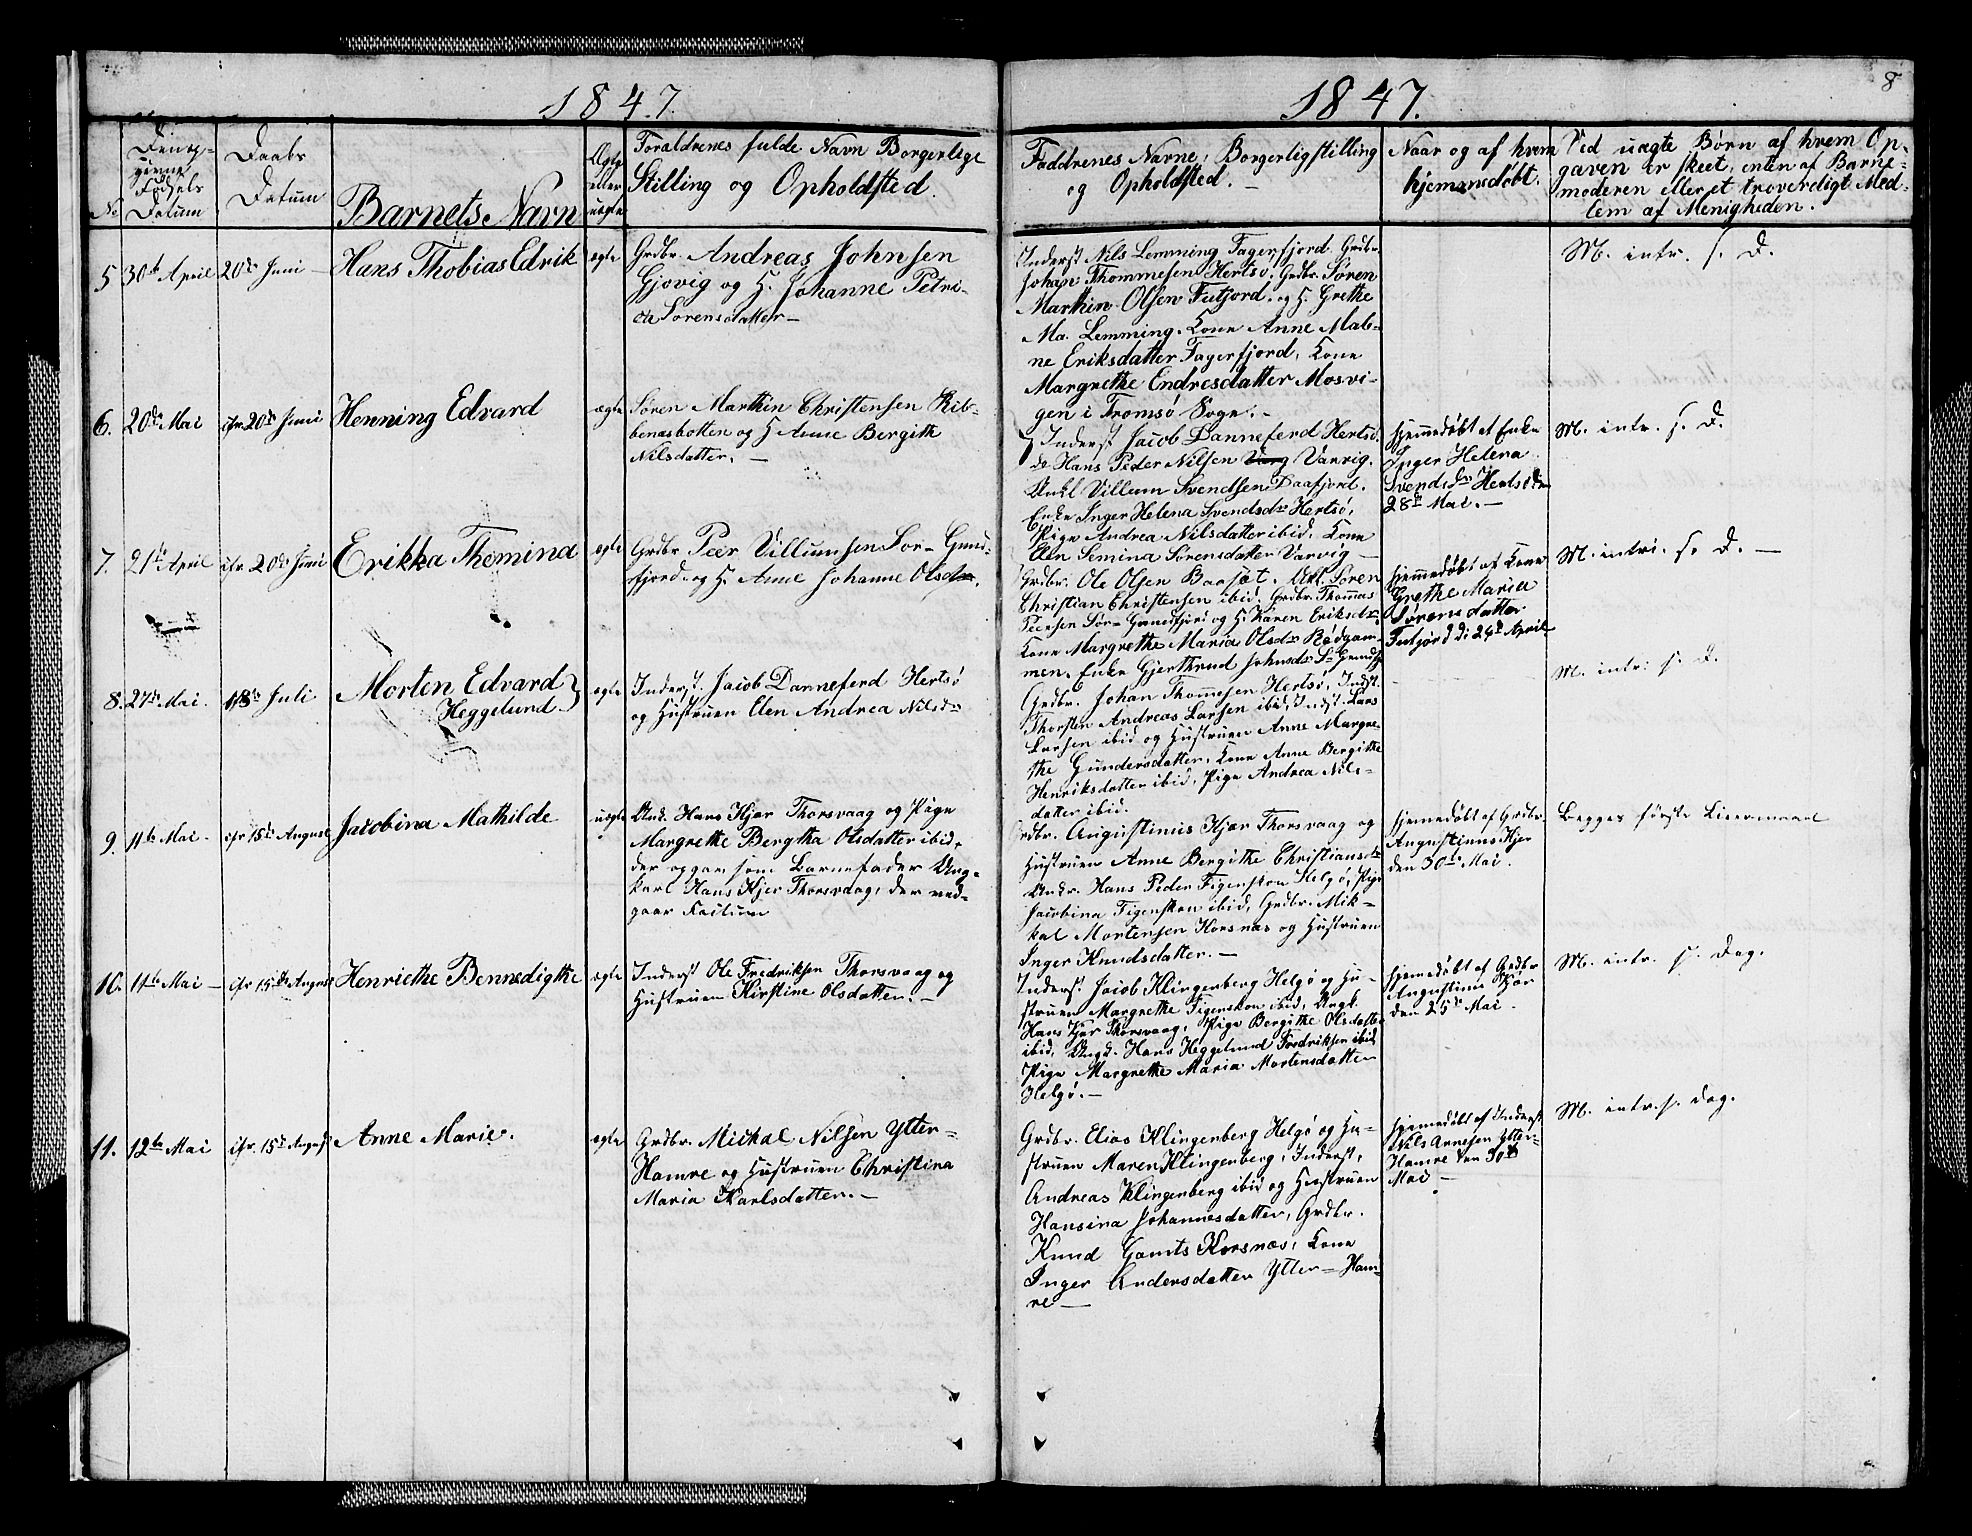 1847.
1847.
8
No
Den op-
givne
Fødsels
Datum
Daabs
Datum
Barnets Navn
Ægte
eller
uægte
Foraldrenes fulde Navn Borgerlige
Stilling og Opholdsted.
Faddrenes Navne, Borgerligstilling
og Opholdsted. –
Naar og af hvem
hjemmedøbt.
Ved uagte Børn af hvem Op-
gaven er skeet, enten af Barne-
moderen eller et troverdigt Med-
lem af Menigheden.
5 30te April 20de Juni – Hans Thobias Edrik ægte
Grdbr. Andreas Johnsen
Gjøvig og H. Johanne Petri-
cka Sorensdatter –
Inderst Nils Lemming Fagerfjord. Grdbr
Johan Thommesen Hertsø. Grdbr. Søren
Marthin Olsen Futfjord. og H. Grethe
Ma. Lemming. Kone Anne Mal-
ne Eriksdatter Fagerfjord, Kone
Margrethe Endresdatter Mosvi-
gen i Tromsø Sogn. –
M. intr. s. D.
6. 20de Mai cfr. 20de Juni Henning Edvard ægte
Søren Marthin Christensen Rib-
benæsbotten og H Anne Bergith
Nilsdatter. –
Inderst Jacob Danneferd Hertsø.
do Hans Peder Nilsen Vanvig.
Unkl Villum Svendsen Daafjord.
Enke Inger Helena Svendsdr Hertsø,
Pige Andrea Nilsdatter ibid. Kone
Elen Semina Sørensdatter Varvig –
hjemmedøbt af Enke
Inger Helena
Svendsdr Hertsø den
28de Mai. –
M. intr. s. D.
7. 21de April cfr. 20de Juni Erikka Thomina ægte
Grdbr Peer Villumsen Sor-Grund-
fjord. og H. Anne Johanne Olsdr.
Grdbr. Ole Olsen Baasæt. Ukl. Søren
Christian Christensen ibid. Grdbr. Thommas
Peersen Sør-Grundfjord og H. Karen Eriksdr.
Kone Margrethe Maria Olsdr Rødgam-
men. Enke Gjerthrud Johnsdr S– Grundfj
hjemmedøbt af Kone
Grethe Maria
Sørensdatter
Futfjord d: 24de April
M. intr. s. D. –
8. 27de Mai. 18de Juli Morten Edvard
Heggelund ægte
Inderst. Jacob Danneferd Hertsø
og Hustruen Elen Andrea Nilsdr
Grdbr. Johan Thommesen Hertsø, Indst.
Thorsten Andreas Larsen ibid Indst. Lars
Larsen ibid og Hustruen Anne Margre-
the Gundersdatter, Kone Anne Bergithe
Henriksdatter ibid, Pige Andrea Nils-
datter ibid.
M. intr. s. D.
9. 11te Mai. cfr 15de August Jacobina Mathilde uægte
Und. Hans Kjær Thorsvaag og Pige
Margrethe Bergtha Olsdatter ibid,
der opgav som Barnefader Ung-
karl Hans Kjer Thorsvaag, der ved-
gaar Factum
Grdbr. Augustinus Kjær Thorsvaag og
Hustruen Anne Bergithe Christiansdr
Undr. Hans Peder Figenskou Helgø, Pige
Jacobina Figenskou ibid, Grdbr. Mik-
kal Mortensen Korsnæs og Hustruen
Inger Knudsdatter. –
hjemmedøbt af Grdbr.
Augustinus Kjer
den 30de Mai.
Begges første Leiermaal
10. 11te Mai – cfr 15de August Henriethe Bennedigthe ægte
Inderst Ole Fredriksen Thorsvaag og
Hustruen Kirstine Olsdatter. –
Inderst. Jacob Klingenberg Helgø og Hu-
struen Margrethe Figenskou ibid, Ungk.
Hans Kjer Thorsvaag, Pige Bergithe Olsdatter
ibid, Ungd. Hans Heggelund Fredriksen ibid,
Pige Margrethe Maria Mortensdatter
Helgø. –
hjemmedøbt af Grdbr
Augustinus Kjør
den 25de Mai.
M. intr. s. Dag.
11. 12te Mai cfr. 15de August Anne Marie. ægte
Grdbr. Mickal Nilsen Ytter-
Hamre og Hustruen Christina
Maria Karlsdatter. –
Grdbr. Elias Klingenberg Helgø og Hu-
struen Maren Klingenberg, Inderst,
Andreas Klingenberg ibid og Hustruen
Hansina Johannesdatter, Grdbr.
Knud Gamts Korsnæs, Kone
Inger Andersdatter Ytter-Ham-
re –
hjemmedøbt af Inderst
Nils Arnesen Ytter-
Hamre den 30te
Mai –
M. intr. s. dag.